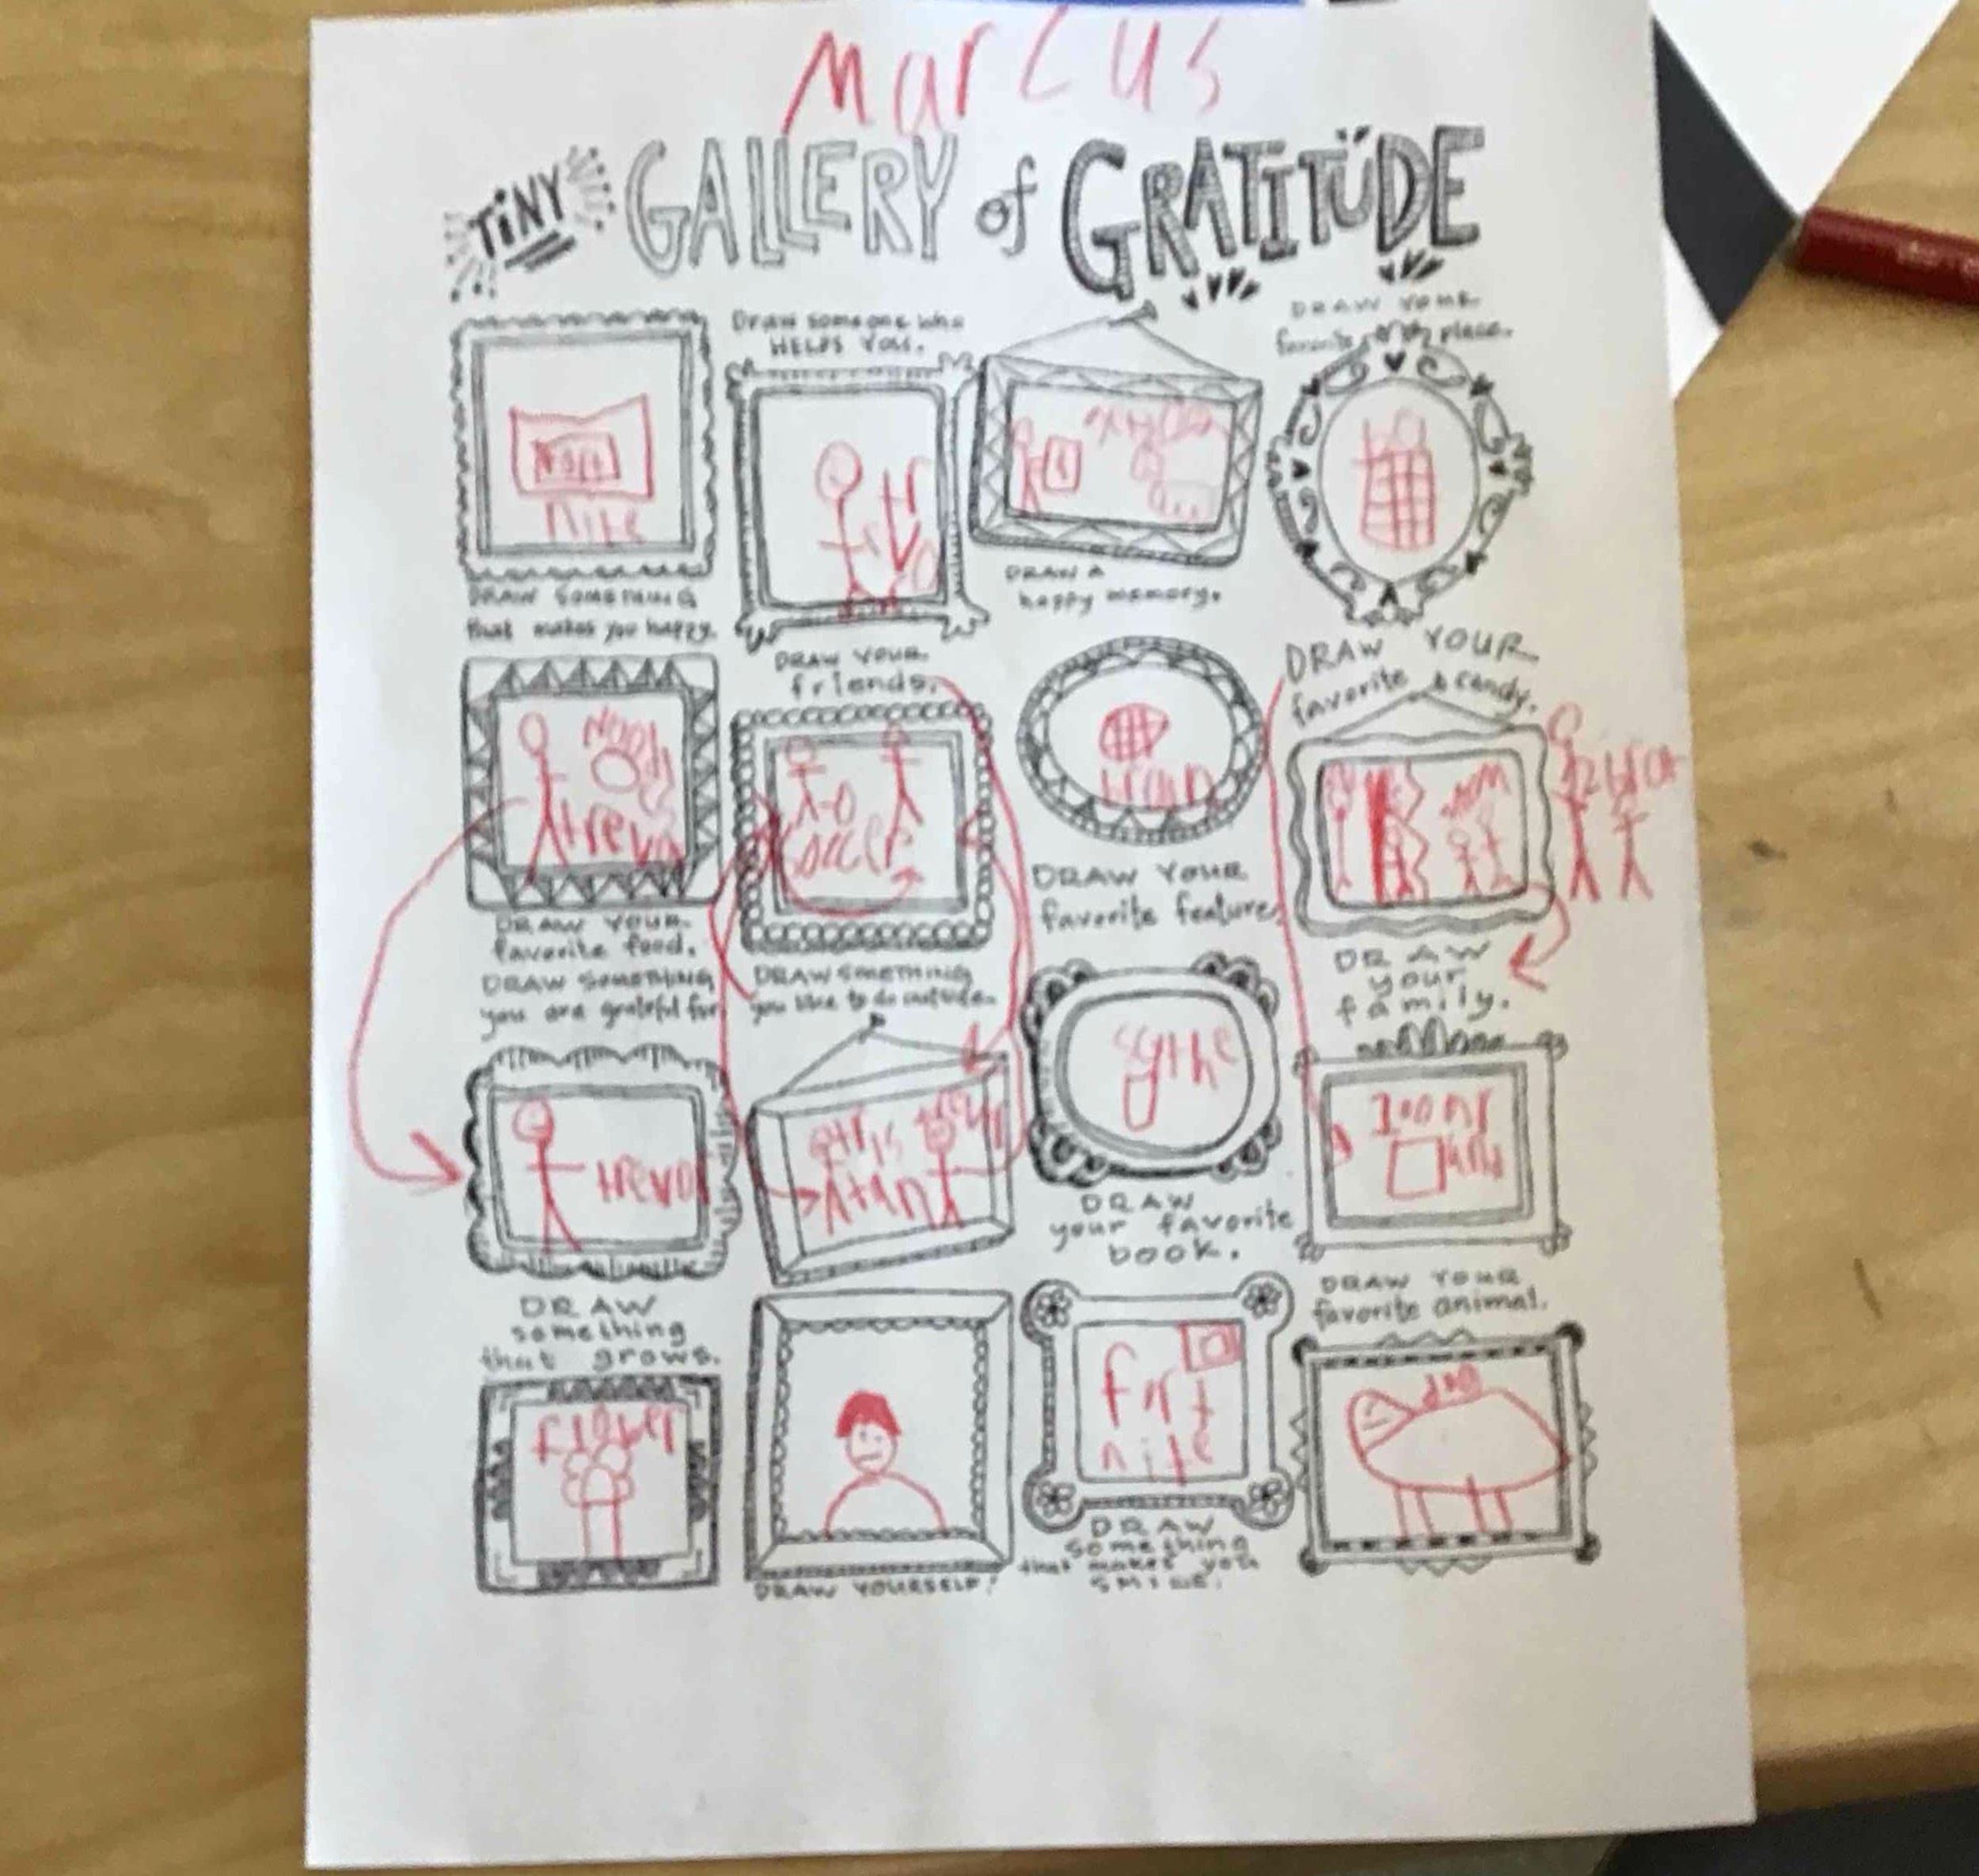 Marcus
TINY GALLERY of GRATITUDE
DRAW SOMETHING
that makes you happy.
nite
Draw someone who
HELPS YOU.
DRAW A
happy memory.
DRAW YOUR
favorite place.
trevo
DRAW YOUR
favorite food.
DRAW YOUR
friends.
soccer
brain
DRAW YOUR
favorite feature.
DRAW YOUR
favorite candy.
DRAW
your
family.
DRAW SOMETHING
you are grateful for
trevor
DRAW SOMETHING
you like to do outside.
tris
tan
scythe
DRAW
your favorite
book.
100 gr
and
DRAW
something
that grows.
flower
DRAW YOURSELF!
fort
nite
DRAW
something
that makes you
SMILE.
DRAW YOUR
favorite animal.
dog